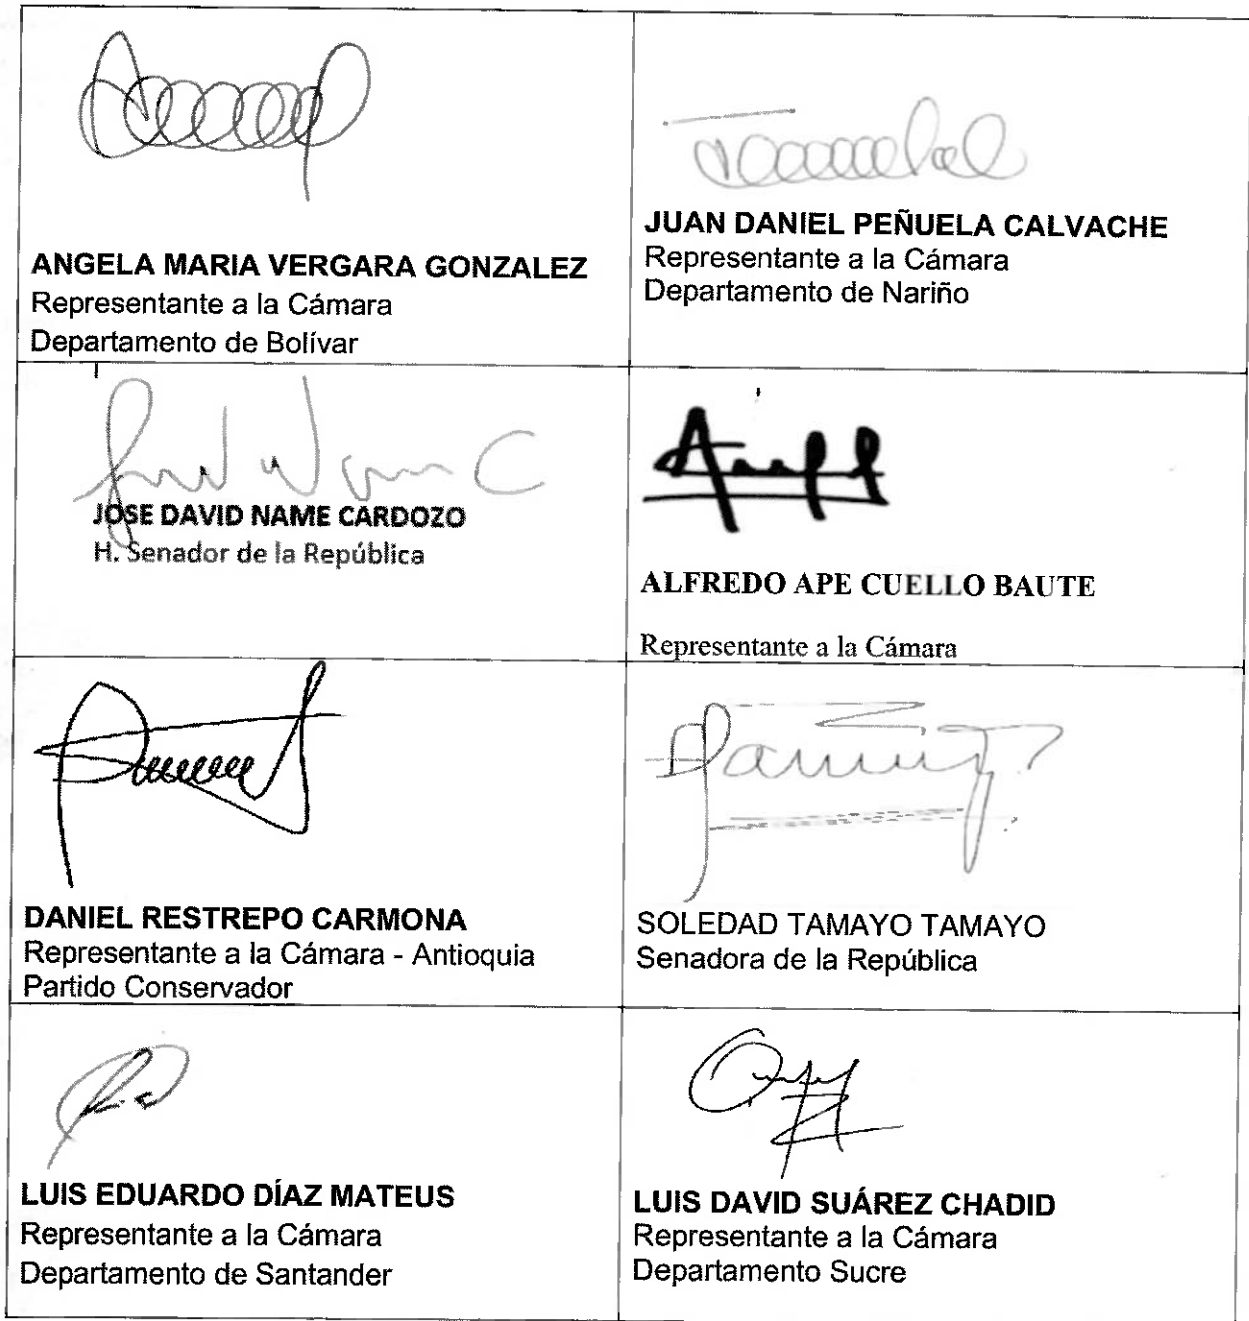 ANGELA MARIA VERGARA GONZALEZ
Representante a la Cámara
Departamento de Bolívar
JUAN DANIEL PEÑUELA CALVACHE
Representante a la Cámara
Departamento de Nariño
JOSE DAVID NAME CARDOZO
H. Senador de la República
ALFREDO APE CUELLO BAUTE
Representante a la Cámara
DANIEL RESTREPO CARMONA
Representante a la Cámara - Antioquia
Partido Conservador
SOLEDAD TAMAYO TAMAYO
Senadora de la República
LUIS EDUARDO DÍAZ MATEUS
Representante a la Cámara
Departamento de Santander
LUIS DAVID SUÁREZ CHADID
Representante a la Cámara
Departamento Sucre